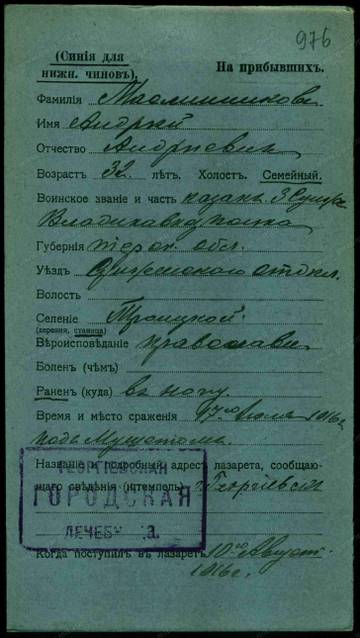 976
(Синія для
нижн. чиновъ).
На прибывшихъ.
Фамилія Масленниковъ
Имя Андрей
Отчество Андреевич
Возрастъ 32 лѣтъ. Холост. Семейный.
Воинское званіе и часть казакъ 3 Сунж
Владикавказ полка
Губернія Терск. обл.
Уѣздъ Сунженскаго отдѣл.
Волость
Селеніе Троицкой
(деревня, станица)
Вѣроисповѣданіе православн
Болен (чѣмъ)
Ранен (куда) въ ногу.
Время и мѣсто сраженія 17го Іюля 1916г
подъ
Названіе и подробный адресъ лазарета, сообщаю-
щаго свѣдѣнія (штемпель) Георгіевск
ГЕОРГІЕВСКАЯ
ГОРОДСКАЯ
ЛЕЧЕБ а.
Когда поступилъ въ лазаретъ 10го Август
1916г.